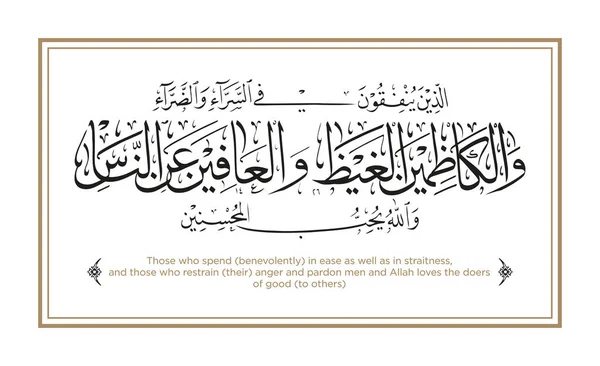 الَّذِينَ يُنْفِقُونَ فِي السَّرَّاءِ وَالضَّرَّاءِ
وَالْكَاظِمِينَ الْغَيْظَ وَالْعَافِينَ عَنِ النَّاسِ
وَاللَّهُ يُحِبُّ الْمُحْسِنِينَ
Those who spend (benevolently) in ease as well as in straitness,
and those who restrain (their) anger and pardon men and Allah loves the doers
of good (to others)